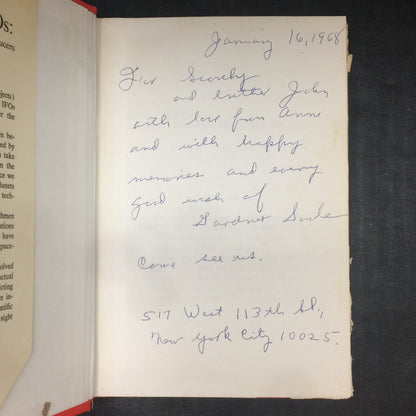 Os:
ucers
jects)
IFOs
r the
n be-
ed by
n take
ce we
lanets
tech-
hmen
ntions
have
pace-
olved
actual
icting
re in-
entific
sight
January 16, 1968
For
and brother John
with love from Anne
and with happy
memories and every
good wish of
Gardner Soule
Come see us.
517 West 113th St.,
New York City 10025.